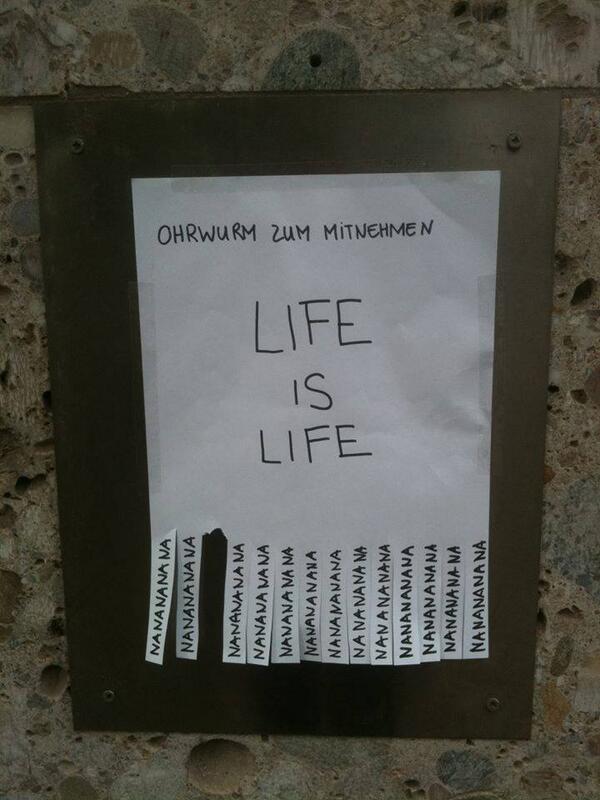 OHRWURM ZUM MITNEHMEN
LIFE
IS
LIFE
NANANANANA
NANANANANA
NANANANANA
NANANANANA
NANANANANA
NANANANA
NANANANANA
NANANANANA
NANANANANA
NANANANANA
NANANANANA
NANANANANA
NANANANANA